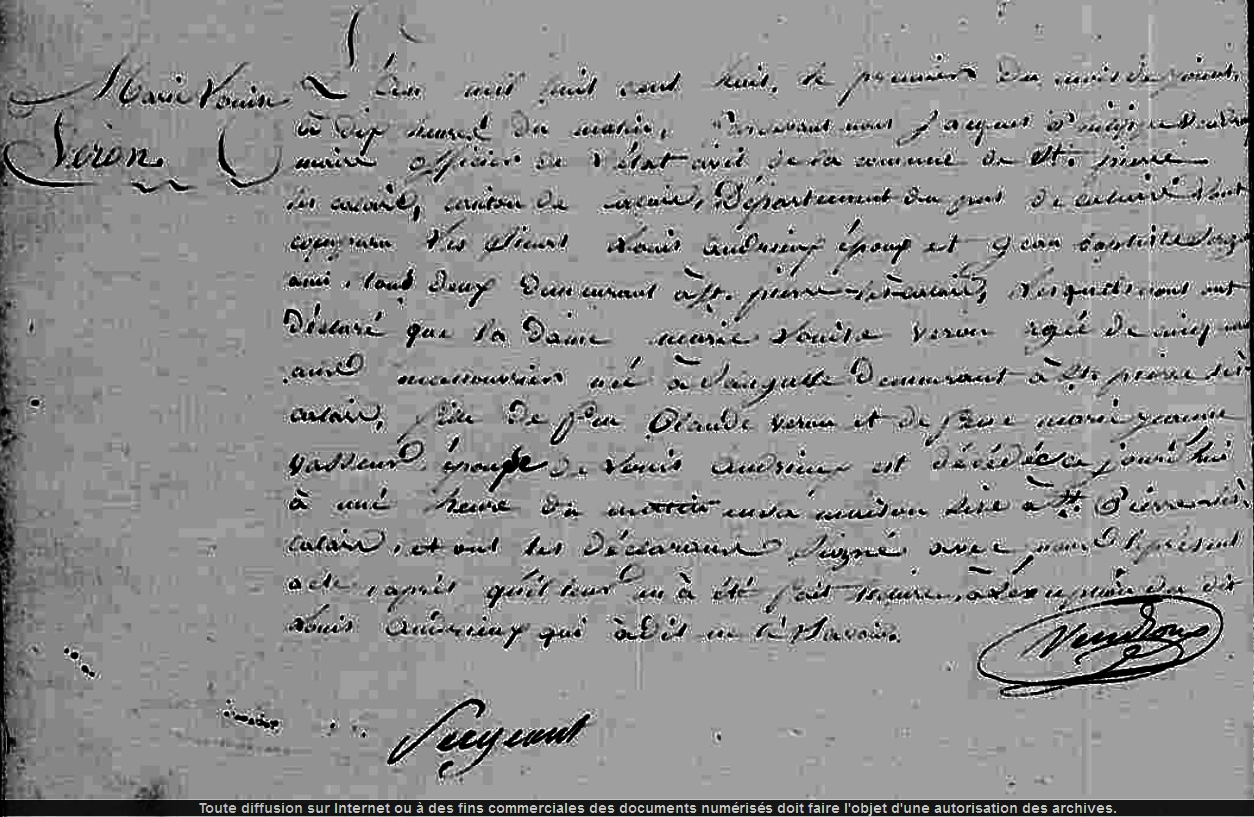 Marie Louise
Veron
L'an mil huit cent huit, le premier du mois de
à dix heures du matin, Pardevant nous Jacques
maire officier de l'état civil de la commune de St. pierre
lès calais, canton de calais, Département du pas de calais sont
comparu les sieurs Louis andrieux époux et jean baptiste
ami, tous deux demeurant à St. pierre lès calais, lesquels nous ont
Déclaré que la dame marie Louise veron agée de cinq
ans né à Sangatte Demeurant à St. pierre lès
calais, fille de feu Claude veron et de feue marie jeanne
vasseur, épouse de Louis andrieux est décédée ce jourd'hui
à une heure du matin en sa maison sise à St. Pierre lès
calais, et ont les déclarans signé avec nous le présent
acte, après qu'il leur en à été fait lecture, à l'exception du dit
Louis andrieux qui à dit ne le savoir.
Sergeant
Toute diffusion sur Internet ou à des fins commerciales des documents numérisés doit faire l'objet d'une autorisation des archives.